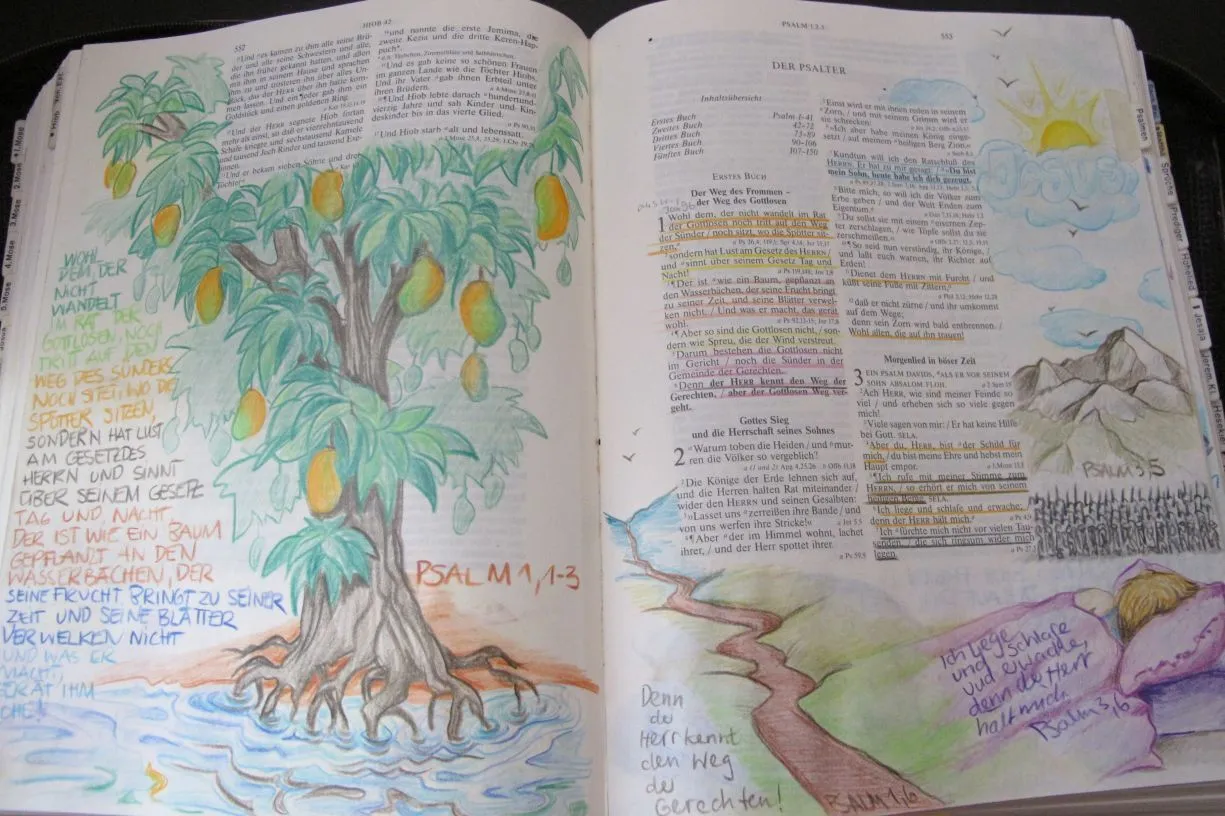 HIOB 42
552
¹¹Und es kamen zu ihm alle seine Brü-
der und alle seine Schwestern und alle,
die ihn früher gekannt hatten, und aßen
mit ihm in seinem Hause und sprachen
ihm zu und trösteten ihn über alles Un-
glück, das der HERR über ihn hatte kom-
men lassen. Und ein jeder gab ihm ein
Goldstück und einen goldenen Ring.
¹²Und der HERR segnete Hiob fortan
mehr als einst, so daß er vierzehntausend
Schafe kriegte und sechstausend Kamele
und tausend Joch Rinder und tausend Esel-
innen.
¹³Und er bekam sieben Söhne und drei
Töchter
und nannte die erste Jemima, die
zweite Kezia und die dritte Keren-Hap-
puch
¹⁵Und es gab keine so schönen Frauen
im ganzen Lande wie die Töchter Hiobs.
Und ihr Vater gab ihnen Erbteil unter
ihren Brüdern.
¹⁶Und Hiob lebte danach hundertund-
vierzig Jahre und sah Kinder und Kin-
deskinder bis in das vierte Glied.
Und Hiob starb alt und lebenssatt.
WOHL
DEM, DER
NICHT
WANDELT
IM RAT DER
GOTTLOSEN, NOCH
TRITT AUF DEN
WEG DES SÜNDERS
NOCH SITZT, WO DIE
SPÖTTER SITZEN,
SONDERN HAT LUST
AM GESETZ DES
HERRN UND SINNT
ÜBER SEINEM GESETZ
TAG UND NACHT.
DER IST WIE EIN BAUM
GEPFLANZT AN DEN
WASSERBÄCHEN, DER
SEINE FRUCHT BRINGT ZU SEINER
ZEIT UND SEINE BLÄTTER
VERWELKEN NICHT
UND WAS ER
MACHT,
GERÄT IHM
PSALM 1,1-3
PSALM 1.2.3
553
DER PSALTER
Inhaltsübersicht
Erstes Buch Psalm 1-41
Zweites Buch 42-72
Drittes Buch 73-89
Viertes Buch 90-106
Fünftes Buch 107-150
ERSTES BUCH
Der Weg des Frommen –
der Weg des Gottlosen
1 Wohl dem, der nicht wandelt im Rat
der Gottlosen noch tritt auf den Weg
der Sünder / noch sitzt, wo die Spötter sit-
zen,
²sondern hat Lust am Gesetz des HERRN /
und sinnt über seinem Gesetz Tag und
Nacht!
³Der ist wie ein Baum, gepflanzt an
den Wasserbächen, der seine Frucht bringt
zu seiner Zeit, und seine Blätter verwel-
ken nicht. / Und was er macht, das gerät
wohl.
⁴Aber so sind die Gottlosen nicht, / son-
dern wie Spreu, die der Wind verstreut.
⁵Darum bestehen die Gottlosen nicht
im Gericht / noch die Sünder in der
Gemeinde der Gerechten.
⁶Denn der HERR kennt den Weg der
Gerechten, / aber der Gottlosen Weg ver-
geht.
Gottes Sieg
und die Herrschaft seines Sohnes
2 Warum toben die Heiden / und mur-
ren die Völker so vergeblich?
²Die Könige der Erde lehnen sich auf,
und die Herren halten Rat miteinander /
wider den HERRN und seinen Gesalbten:
³»Lasset uns zerreißen ihre Bande / und
von uns werfen ihre Stricke!«
⁴Aber der im Himmel wohnt, lachet
ihrer, / und der Herr spottet ihrer.
⁵Einst wird er mit ihnen reden in seinem
Zorn, / und mit seinem Grimm wird er
sie schrecken:
⁶»Ich aber habe meinen König einge-
setzt / auf meinem heiligen Berg Zion.«
⁷Kundtun will ich den Ratschluß des
HERRN. Er hat zu mir gesagt: / »Du bist
mein Sohn, heute habe ich dich gezeugt.
⁸Bitte mich, so will ich dir Völker zum
Erbe geben / und der Welt Enden zum
Eigentum.
⁹Du sollst sie mit einem eisernen Zep-
ter zerschlagen, / wie Töpfe sollst du sie
zerschmeißen.«
¹⁰So seid nun verständig, ihr Könige, /
und laßt euch warnen, ihr Richter auf
Erden!
¹¹Dienet dem HERRN mit Furcht / und
küßt seine Füße mit Zittern,
daß er nicht zürne / und ihr umkommt
auf dem Wege;
denn sein Zorn wird bald entbrennen. /
Wohl allen, die auf ihn trauen!
Morgenlied in böser Zeit
3 EIN PSALM DAVIDS, ALS ER VOR SEINEM
SOHN ABSALOM FLOH.
²Ach HERR, wie sind meiner Feinde so
viel / und erheben sich so viele gegen
mich!
³Viele sagen von mir: / Er hat keine Hilfe
bei Gott. SELA.
⁴Aber du, HERR, bist der Schild für
mich, / du bist meine Ehre und hebst mein
Haupt empor.
⁵Ich rufe mit meiner Stimme zum
HERRN, / so erhört er mich von seinem
heiligen Berge. SELA.
⁶Ich liege und schlafe und erwache; /
denn der HERR hält mich.
⁷Ich fürchte mich nicht vor vielen Tau-
senden, / die sich ringsum wider mich
legen.
PSALM 3,5
Denn
der
Herr kennt
den Weg
der
Gerechten!
PSALM 1,6
Ich liege
und schlafe
und erwache,
denn der Herr
hält mich.
Psalm 3,6
Hiob
1.Mose
2.Mose
3.Mose
4.Mose
5.Mose
Josua
Psalmen
Sprüche
Prediger
Hohelied
Jesaja
Jerem.
Kl.
Hesek